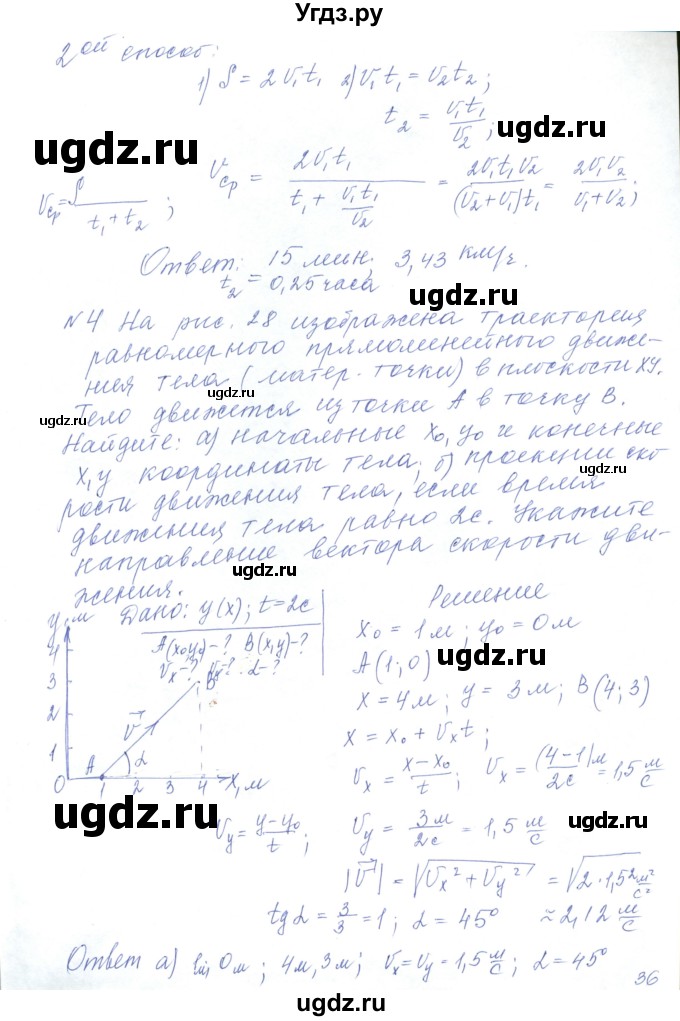 Угдз.ру
2ой способ:
1) S = 2v₁t₁ 2) v₁t₁ = v₂t₂;
t₂ = v₁t₁/v₂;
vср = S/(t₁+t₂); vср = 2v₁t₁/(t₁ + v₁t₁/v₂) = 2v₁t₁v₂/((v₂+v₁)t₁) = 2v₁v₂/(v₁+v₂);
ugdz.ru
ugdz.ru
ugdz.ru
Ответ: 15 мин; 3,43 км/ч.
t₂ = 0,25 часа
ugdz.ru
№4 На рис. 28 изображена траектория
равномерного прямолинейного движе-
ния тела (матер. точки) в плоскости XY.
ugdz.ru
Тело движется из точки А в точку В.
ugdz.ru
Найдите: а) начальные x₀, y₀ и конечные
x, y координаты тела; б) проекции ско
ugdz.ru
рости движения тела, если время
движения тела равно 2с. Укажите
направление вектора скорости дви-
жения.
y, м Дано: y(x); t=2c
A(x₀y₀)-? B(x,y)-?
vₓ-? vᵧ-? α-?
4
3
2
1
0
A
B
v⃗
α
1 2 3 4 X, м
ugdz.ru
Решение
x₀ = 1м; y₀ = 0м
ugdz.ru
A(1;0)
x = 4м; y = 3м; B(4;3)
x = x₀ + vₓt;
vₓ = (x-x₀)/t; vₓ = (4-1)м/2с = 1,5 м/с
ugdz.ru
vᵧ = (y-y₀)/t; vᵧ = 3м/2с = 1,5 м/с
ugdz.ru
|v⃗| = √(vₓ² + vᵧ²) = √(2·1,5² м²/с²)
tg α = 3/3 = 1; α = 45° ≈ 2,12 м/с
ugdz.ru
ugdz.ru
Ответ а) 1м, 0м; 4м, 3м; vₓ = vᵧ = 1,5 м/с; α = 45°
36
ugdz.ru